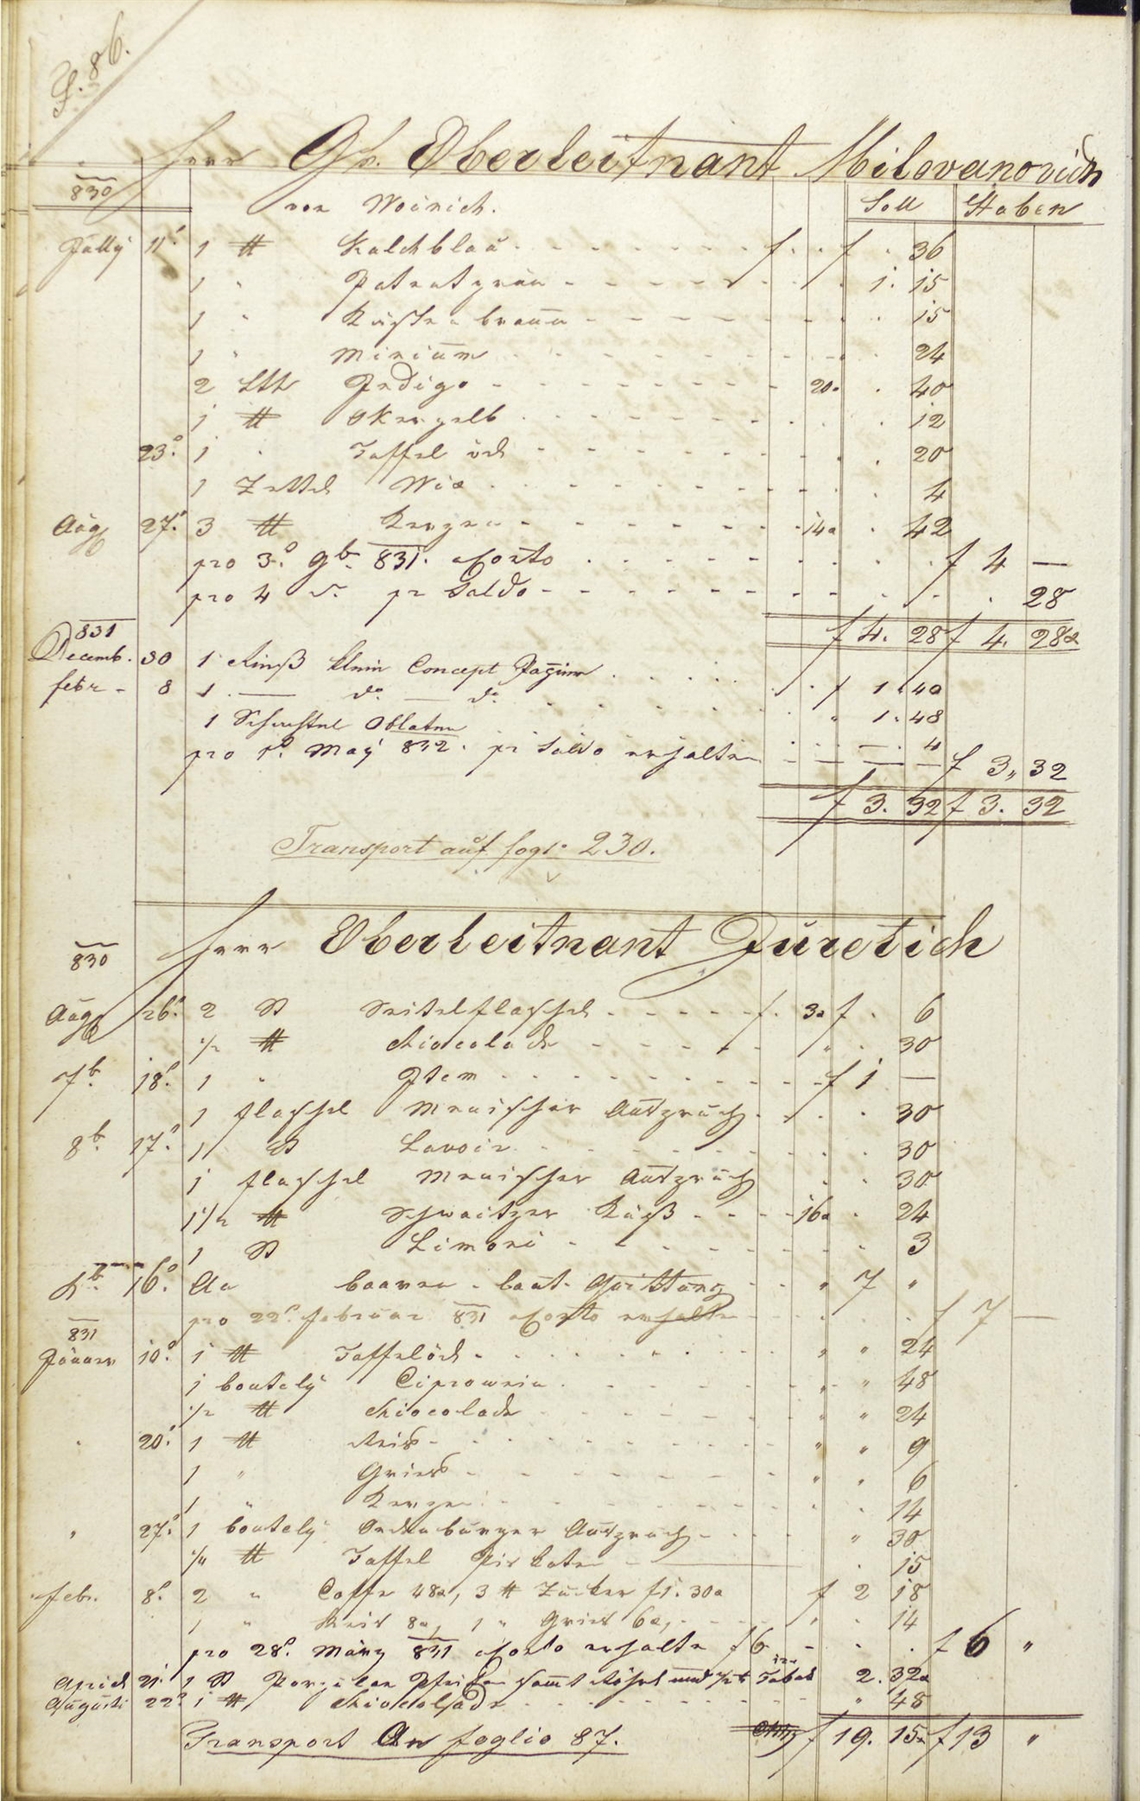 F. 86.
Herr Gr. Oberleitnant Milovanovich
830 von Woinich. Soll Haben
Jully 11t 1 ℔ Kalchblaü f. f . 36
1 " Patentgrün 1. 15
1 " Kästenbraun . 15
1 " Minium . 24
2 Lth Indigo 20. . 40
1 ℔ Okergelb . 12
23t 1 " Taffel öhl . 20
1 Zettel Wix . 4
Aug 27t 3 ℔ Kerzen 14x . 42
pro 3t 9br 831. a Conto f 4 —
pro 4 do pr Saldo . 28
f 4. 28 f 4. 28x
831
Decemb. 30 1 Rieß klein Concept Papier f 1. 40
febr - 8 1 — do — do " 1. 48
1 Schachtel Oblaten — . 4
pro 1t May 832. pr Saldo erhalten f 3,, 32
f 3. 32 f 3. 32
Transport auf fogl: 230.
830 Herr Oberleitnant Juretich
Aug 26t 2 St Seitelflaschel f. 3x f . 6
1/2 ℔ Chiocolade " . 30
7b. 18t 1 " Item f 1 —
1 flaschel Menischer Ausbruch . 30
8b. 17t 1 St Lavoir . 30
1 flaschel Menischer Ausbruch . 30
1 1/2 ℔ Schweitzer Käß 16x . 24
1 St Limoni . 3
16t An baaren laut Quittung " 7 "
pro 22t februar 831 a Conto erhalten f 7 —
831
Jäner 10t 1 ℔ Taffelöhl " " 24
1 boutely Ciprowein " " 48
1/2 ℔ Chiocolade " " 24
" 20t 1 ℔ Reis " " 9
1 " Gries " " 6
1 " Kerzen . 14
" 27t 1 boutely Ausbruch " 30
1/4 ℔ Taffel . 15
febr. 8t 2 " Caffe 48x, 3 ℔ Zucker f 1. 30x f 2 18
1 " Reis 8x, 1 " Gries 6x, " . 14
pro 28t März 831 a Conto erhalten f 6 - f 6 "
April 21t 1 St Porzilan Pfeifen samt Röhrl und Tabak 2. 32x
Augusti 22t 1 ℔ Chiocolade " 48
Transport An foglio 87. f 19. 15x f 13 "